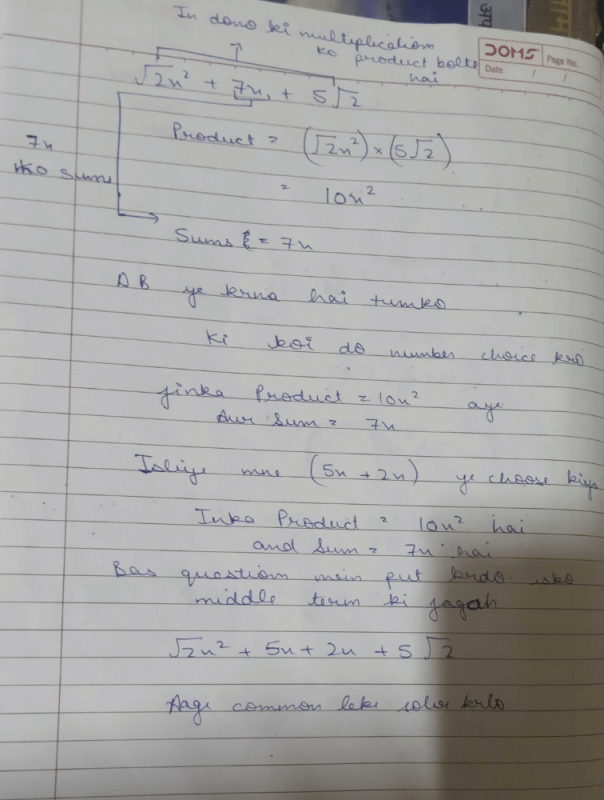 In dono ki multiplication
ko product bolte
hai
DOMS
Page No.
Date / /
√2x² + 7x, + 5√2
7x
ko sums
Product = (√2x²) × (5√2)
= 10x²
Sums = 7x
AB ye krna hai tumko
Ki koi do number choice kro
jinka Product = 10x² aye
Aur Sum = 7x
Isliye mne (5x + 2x) ye choose kiya
Inka Product = 10x² hai
and Sum = 7x hai
Bas question mein put krdo isko
middle term ki jagah
√2x² + 5x + 2x + 5√2
Aage common leke solve krlo